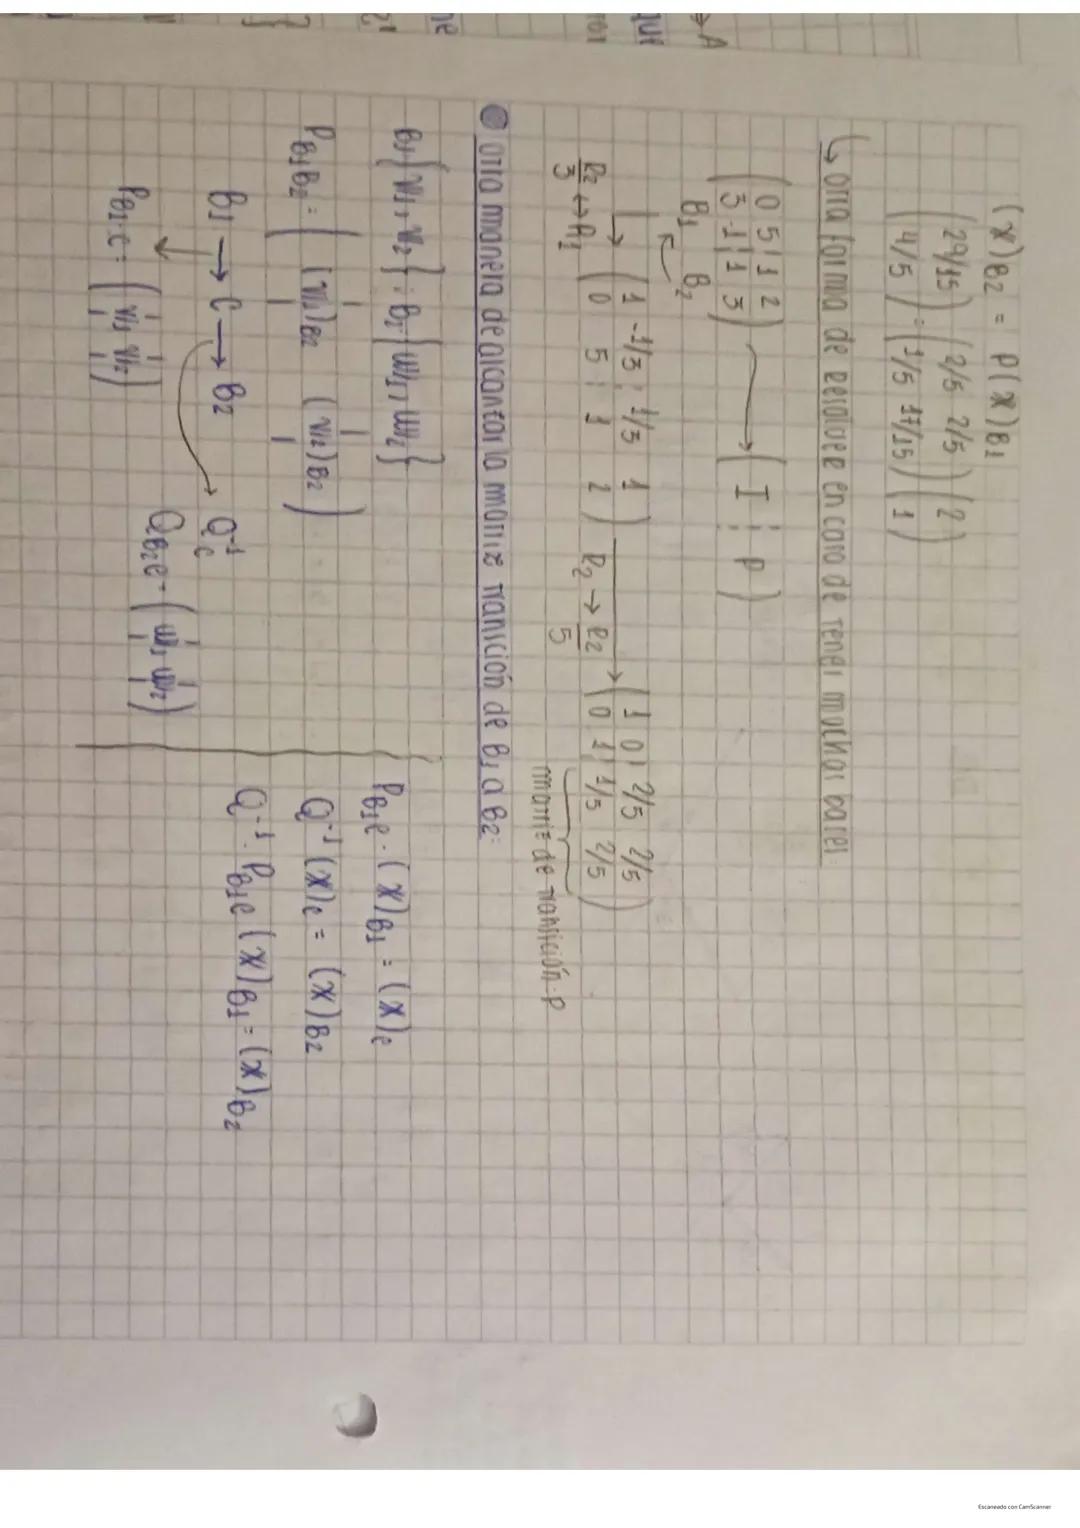 (x)B2 = P(x)B1
(29/15 4/5) = (2/5 2/5 1/5 17/15) (2 1)
↳ otra forma de resolver en caso de tener muchas bases
(0 5 | 1 2
3 -1 | 1 3) → ( I ¦ P )
B1 B2
(1 -1/3 ¦ 1/3 1
0 5 ¦ 1 2)
R2/3 ↔ R1
R2 → R2/5
(1 0 | 2/5 2/5
0 1 | 1/5 2/5)
matriz de transición P
otra manera de alcanzar la matriz transición de B1 a B2:
B1{v1, v2} ; B2{w1, w2}
PB1B2 = ( (v1)B2 (v2)B2 )
B1 → C → B2
Q⁻¹c
PB1C = ( v1 v2 )
QB2C = ( w1 w2 )
PB1C · (x)B1 = (x)C
Q⁻¹ (x)C = (x)B2
Q⁻¹ · PB1C (x)B1 = (x)B2
→ A
que
Escaneado con CamScanner